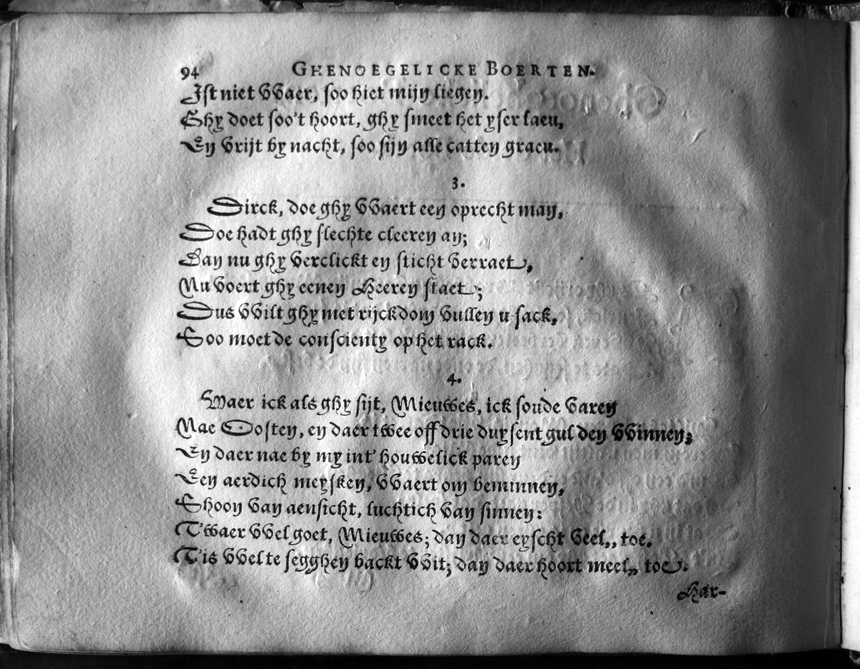 94 GHENOEGELICKE BOERTEN.
Ist niet VVaer, soo hiet mijn liegen.
Ghy doet soo't hoort, ghy smeet het yser laeu,
En Vrijt by nacht, soo sijn alle catten graeu.
3.
Dirck, doe ghy VVaert een oprecht man,
Doe hadt ghy slechte cleeren an;
Dan nu ghy Verclickt en sticht Verraet,
Nu Voert ghy eenen Heeren staet;
Dus VVilt ghy met rijckdom Vullen u sack,
Soo moet de conscienty op het rack.
4.
Waer ick als ghy sijt, Mieuwes, ick soude Varen
Nae Oosten, en daer twee off drie duysent gulden VVinnen;
En daer nae by my int' houwelick paren
Een aerdich meysken, VVaert om beminnen,
Shoon Van aensicht, luchtich Van sinnen:
T'waer VVel goet, Mieuwes; dan daer eyscht Veel,, toe.
T'is VVel te segghen backt VVit; dan daer hoort meel,, toe.
Har-